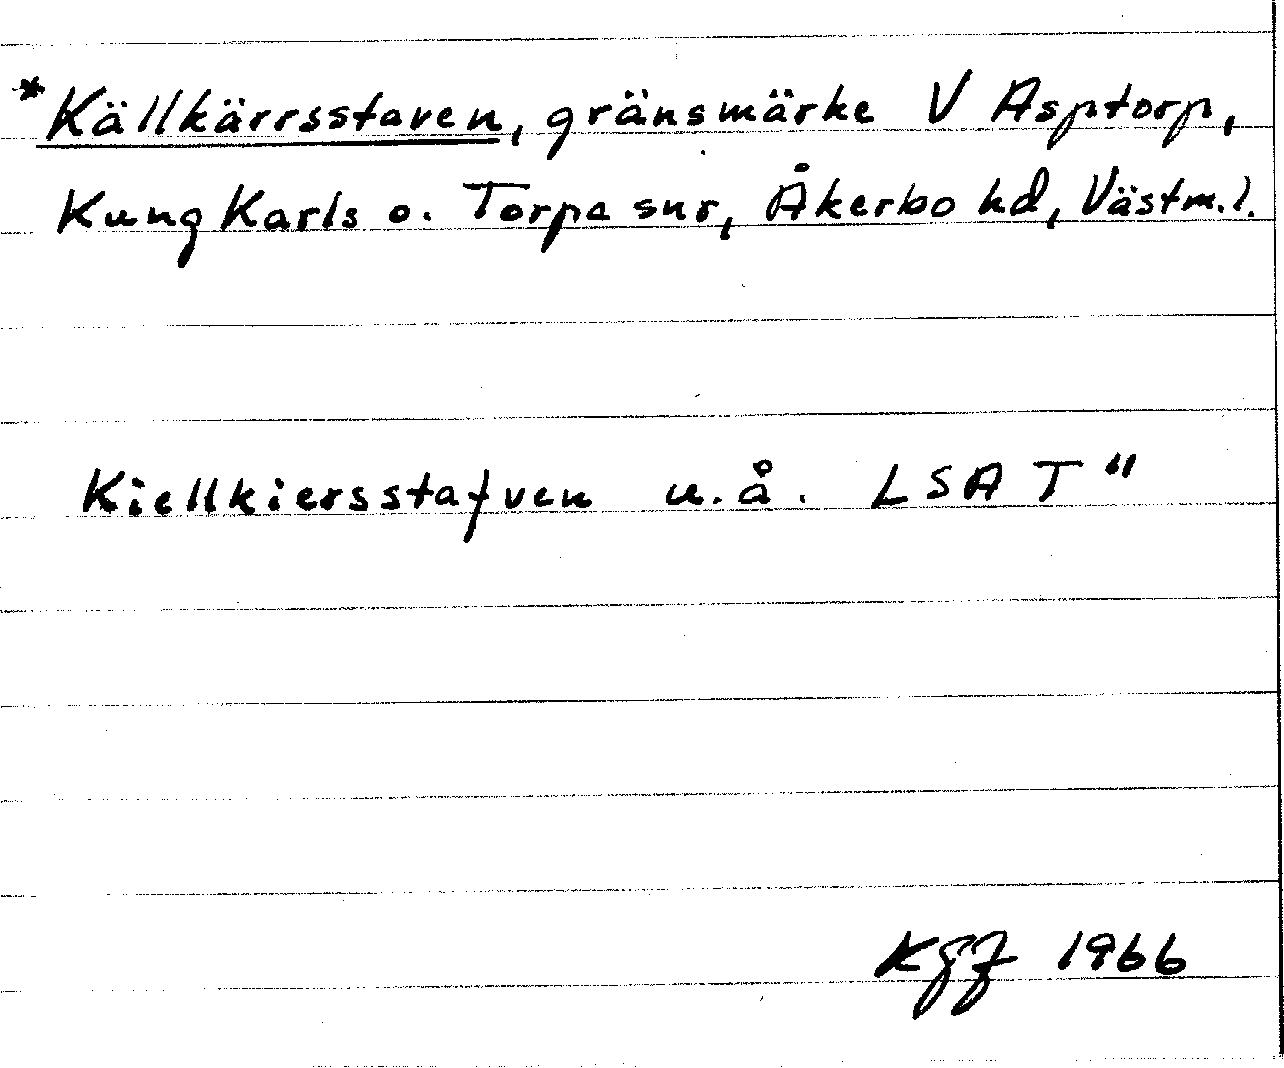 *Källkärrsstaven, gränsmärke V Asptorp,
Kung Karls o. Torpa snr, Åkerbo hd, Västm.l.
Kiellkiersstafven u.å. LSA T"
KGF 1966